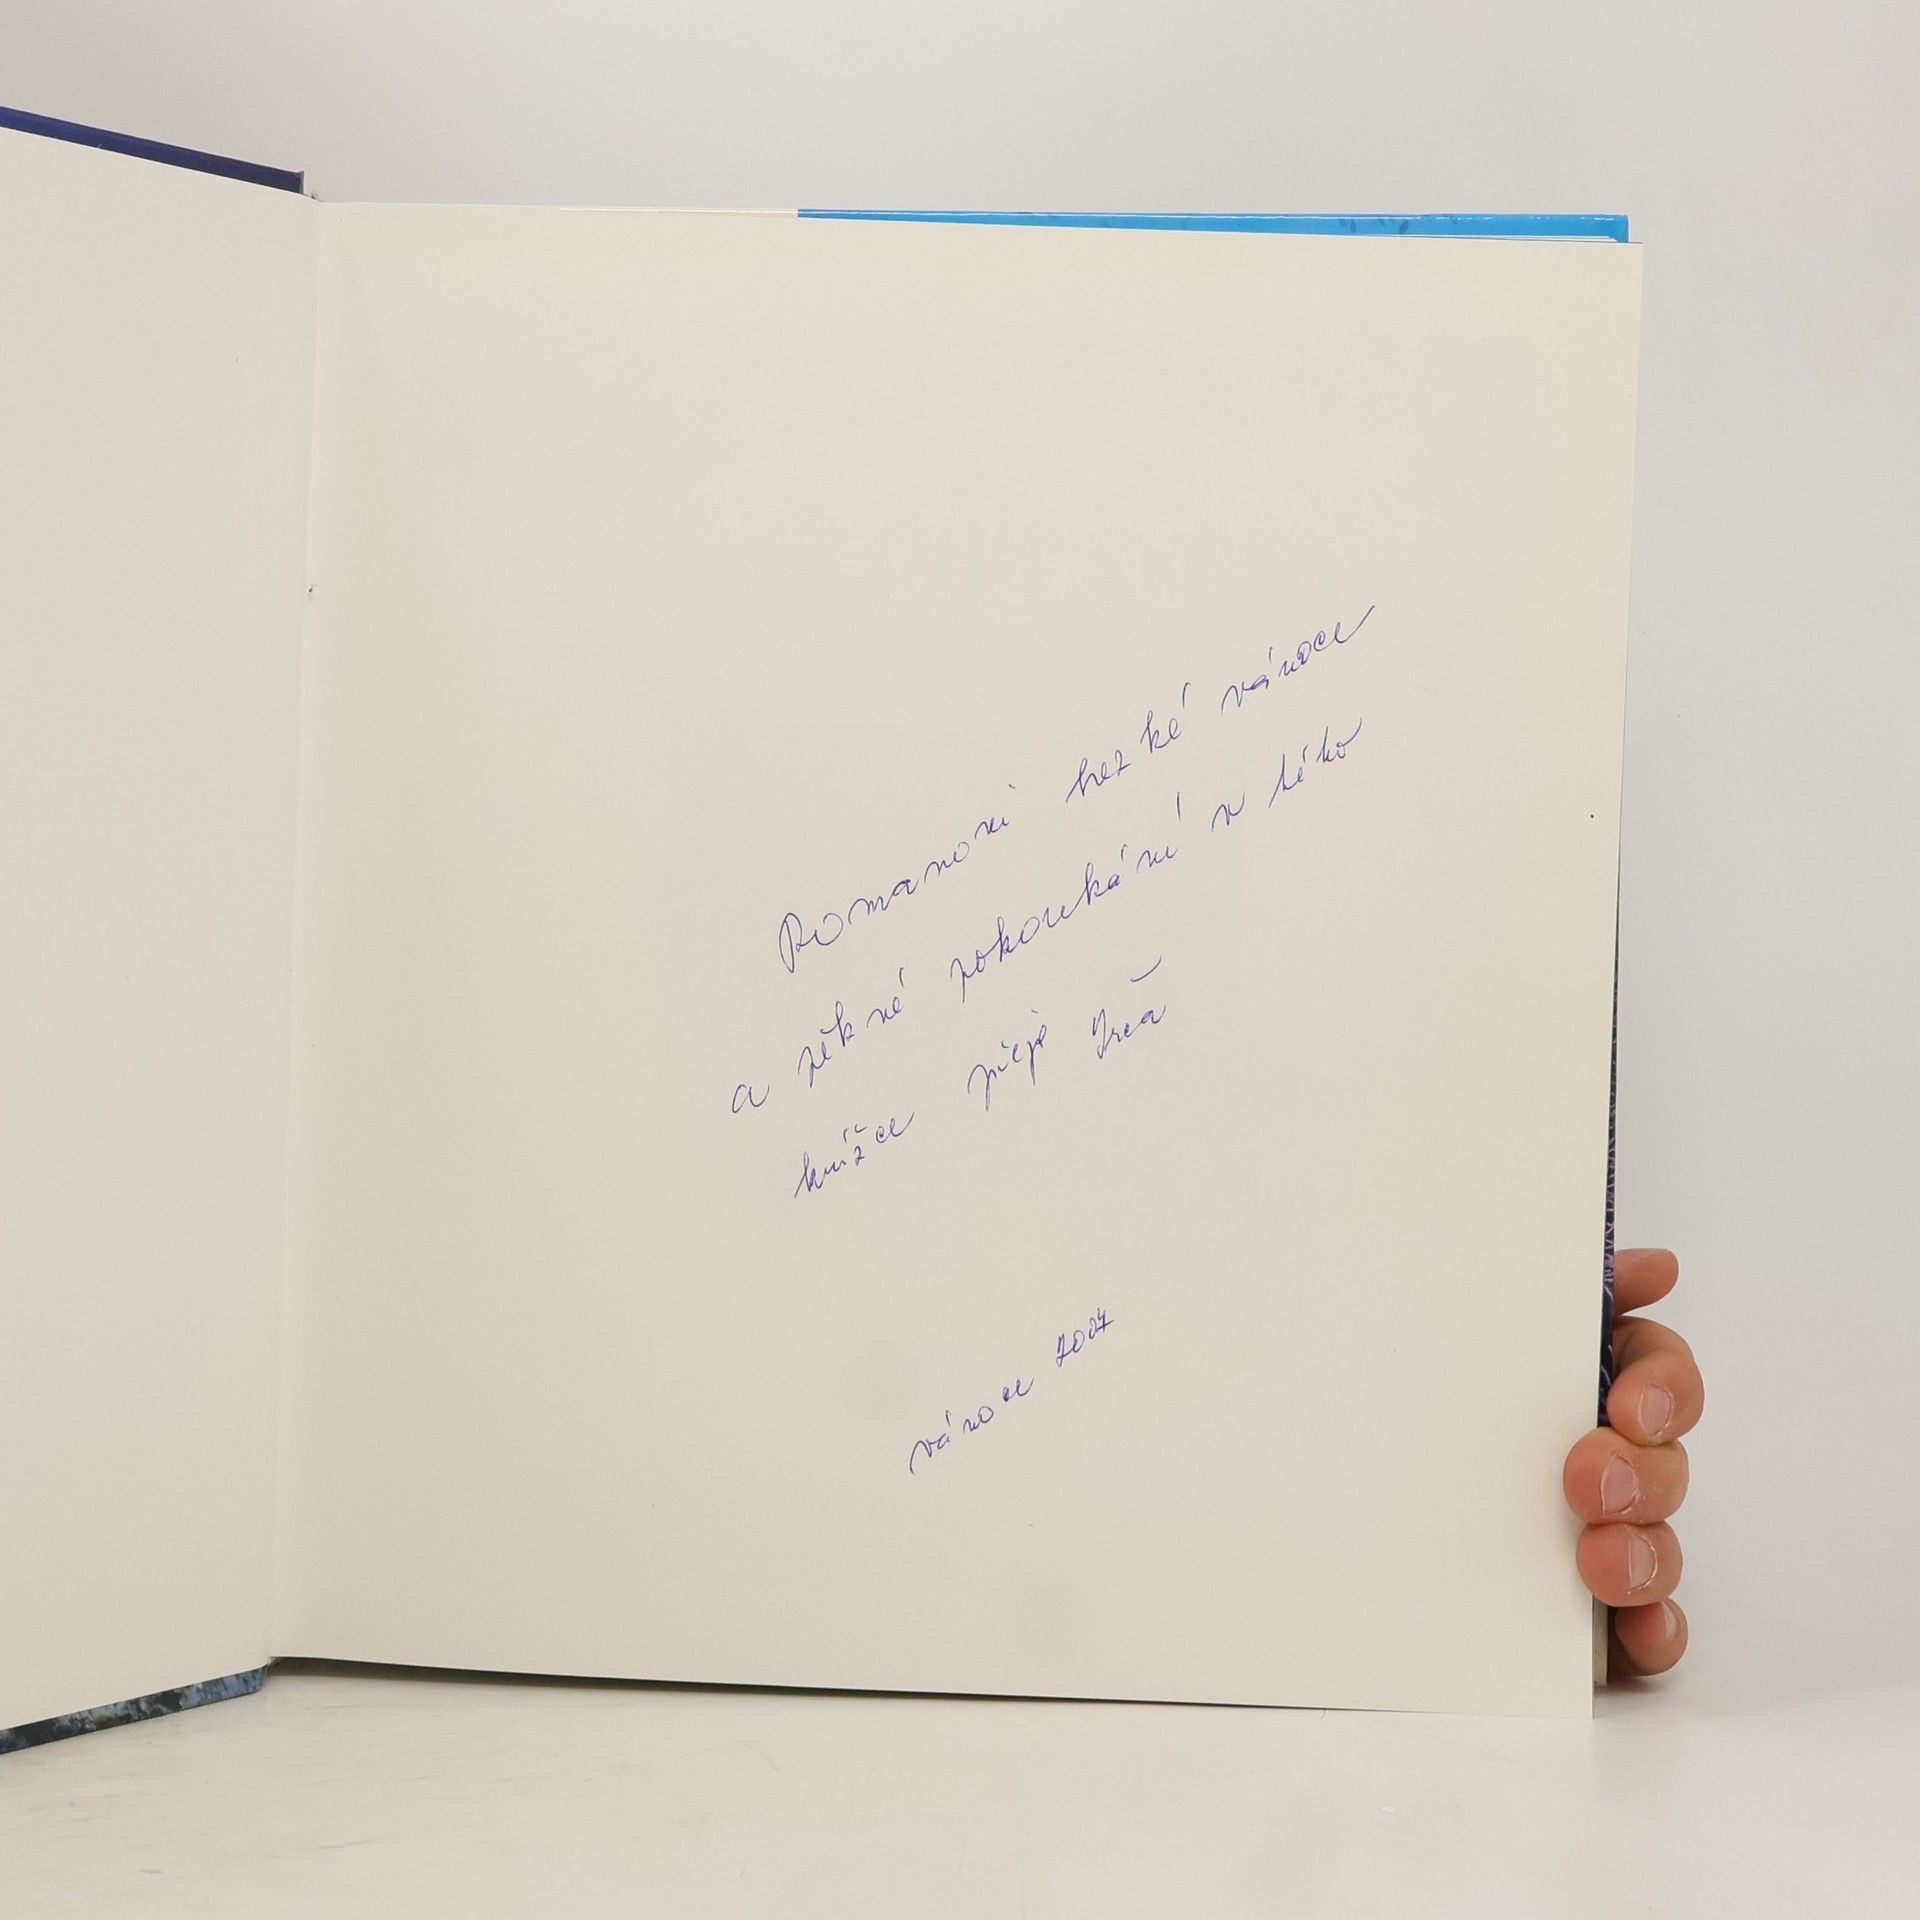 Romanovi hezké vánoce
a pěkné pokoukání v této
knížce přeje
vánoce 2007